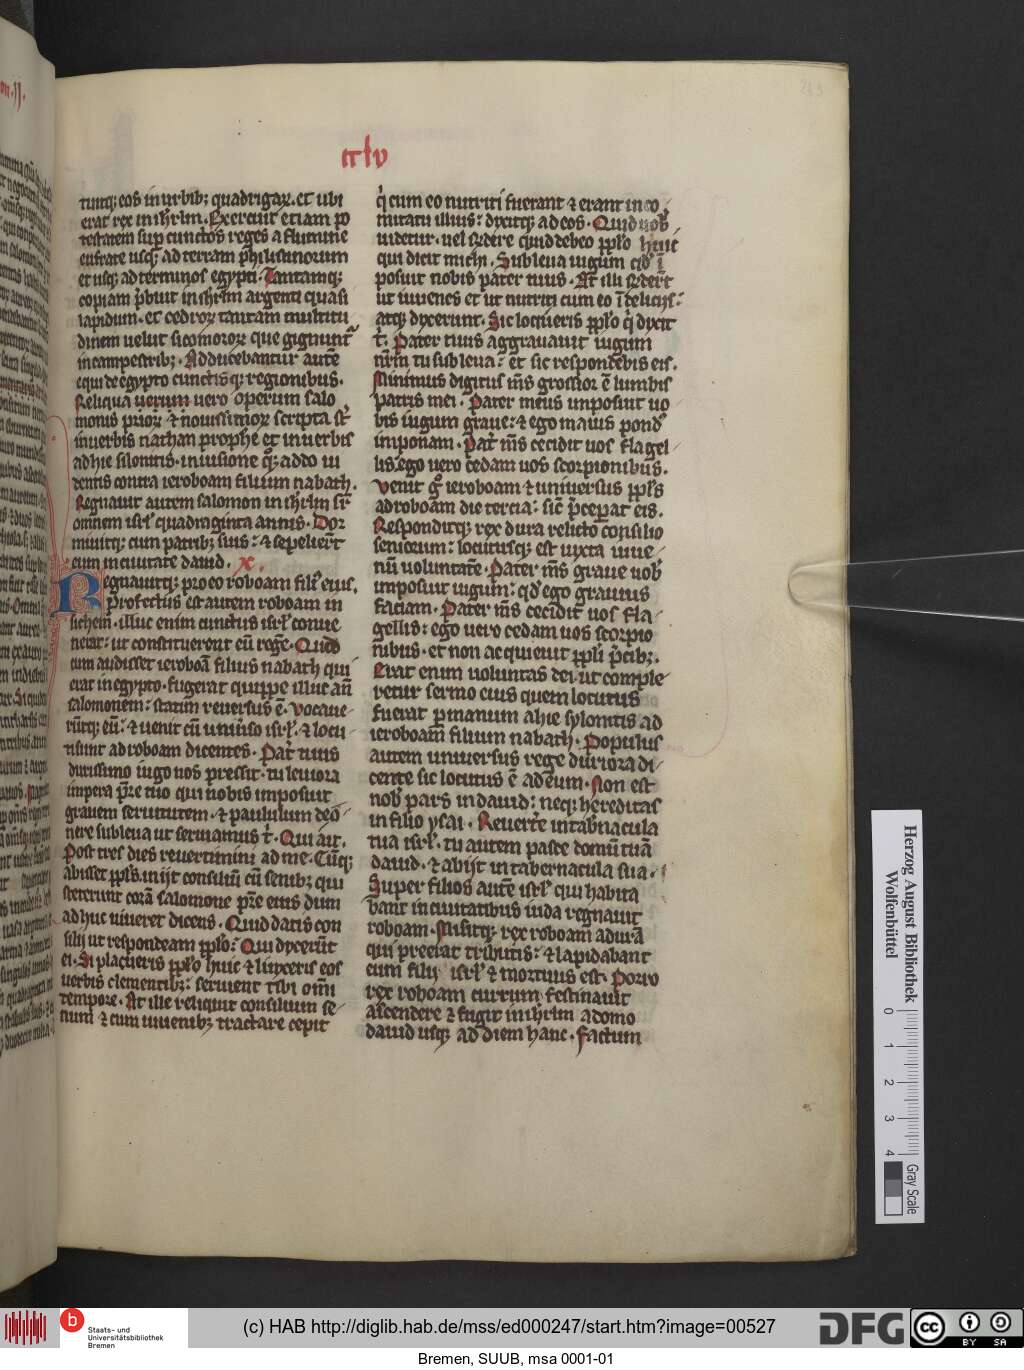 cclv
tuitq; eos in urbib; quadrigaꝝ. et ubi
erat rex in ihrlm. Exercuit etiam po
testatem sup cunctos reges a flumine
eufrate usq; ad terram philistinorum
et usq; ad terminos egypti. Tantamq;
copiam p̄buit in ihrlm argenti quasi
lapidum. et cedroꝝ tantam multitu
dinem uelut sicomoroꝝ que gignunt᷑
in campestrib;. Adducebantur autē
equi de egypto cunctisq; regionibus.
Reliqua uerum uero operum salo
monis prioꝝ ⁊ nouissimoꝝ scripta st̄
in uerbis nathan prophe et in uerbis
adhie silonitis. in uisione q; addo ui
dentis contra ieroboam filium nabath.
Regnauit autem salomon in ihrlm sr̄
omnem isrl̄ quadraginta annis. Dor
miuitq; cum patrib; suis: ⁊ sepelier̄t
eum in ciuitate dauid. x.
Regnauitq; pro eo roboam fili᷒ eius.
Profectus est autem roboam in
sichem. illuc enim cunctus isrl̄ conue
nerat: ut constituerent eū regē. Quod
cum audisset ieroboā filius nabath qui
erat in egypto. fugerat quippe illuc an̄
salomonem: statim reuersus ē. Vocaue
rūtq; eū: ⁊ uenit cū uniuso isrl̄. ⁊ locu
ti sunt ad roboam dicentes. Pat̄ tuus
durissimo iugo nos pressit. tu leuiora
impera p̄re tuo qui nobis imposuit
grauem seruitutem. ⁊ paululum deo
nere subleua ut seruiamus t̄. Qui ait.
Post tres dies reuertimini ad me. Cūq;
abisset ppl̄s. inijt consiliū cū senib; qui
steterunt corā salomone p̄re eius dum
adhuc uiueret dicens. Quid datis con
silij ut respondeam ppl̄o: Qui dyxerūt
ei. Si placueris ppl̄o huic ⁊ linyeris eos
uerbis clementib;: seruient tibi om̄i
tempore. At ille reliquit consilium se
num ⁊ cum iuuenib; tractare cepit
q̇ cum eo nutriti fuerant ⁊ erant in co
mitatu illius: dyxitq; ad eos. Quid uob̄
uidetur. uel rn̄dere quid debeo ppl̄o huic
qui dicit michi. Subleua iugum qd̄ ī
posuit nobis pater tuus. At illi rn̄der̄t
ut iuuenes et ut nutriti cum eo ī delicijs:
atq; dyxerunt. Sic loqueris ppl̄o q̇ dixit
t̄. Pater tuus aggrauauit iugum
nr̄m tu subleua: et sic respondebis eis.
Minimus digitus m̄s grossior ē lumbis
patris mei. Pater meus imposuit uo
bis iugum graue: ⁊ ego maius pond᷒
inponam. Pat̄ m̄s cecidit uos flagel
lis. ego uero cedam uos scorpionibus.
Venit g̊ ieroboam ⁊ uniuersus ppl̄s
ad roboam die tercia: sic̄ p̄ceperat eis.
Responditq; rex dura relicto consilio
seniorum: locutusq; est iuxta iuue
nū uoluntatē. Pater m̄s graue uob̄
imposuit iugum: qd̄ ego grauius
faciam. Pater m̄s cecidit uos fla
gellis: ego uero cedam uos scorpio
nibus. et non acquieuit ppl̄i p̄cib;.
Erat enim uoluntas dei. ut comple
retur sermo eius quem locutus
fuerat p manum ahie sylonitis ad
ieroboam filium nabath. Populus
autem uniuersus rege duriora di
cente sic locutus ē ad eum. Non est
nob̄ pars in dauid: neq; hereditas
in filio ysai. Reuert̄e in tab̄nacula
tua isrl̄. tu autem pasce domū tuā
dauid. ⁊ abijt in tabernacula sua.
Super filios autē isrl̄ qui habita
bant in ciuitatibus iuda regnauit
roboam. Misitq; rex roboam adurā
qui preerat tributis: ⁊ lapidabant
eum filij isrl̄ ⁊ mortuus est. Porro
rex roboam currum festinauit
ascendere ⁊ fugit in ihrlm a domo
dauid usq; ad diem hanc. Factum
Herzog August Bibliothek
Wolfenbüttel
0 1 2 3 4
Gray Scale
b
Staats- und
Universitätsbibliothek
Bremen
(c) HAB http://diglib.hab.de/mss/ed000247/start.htm?image=00527
DFG
cc
BY SA
Bremen, SUUB, msa 0001-01